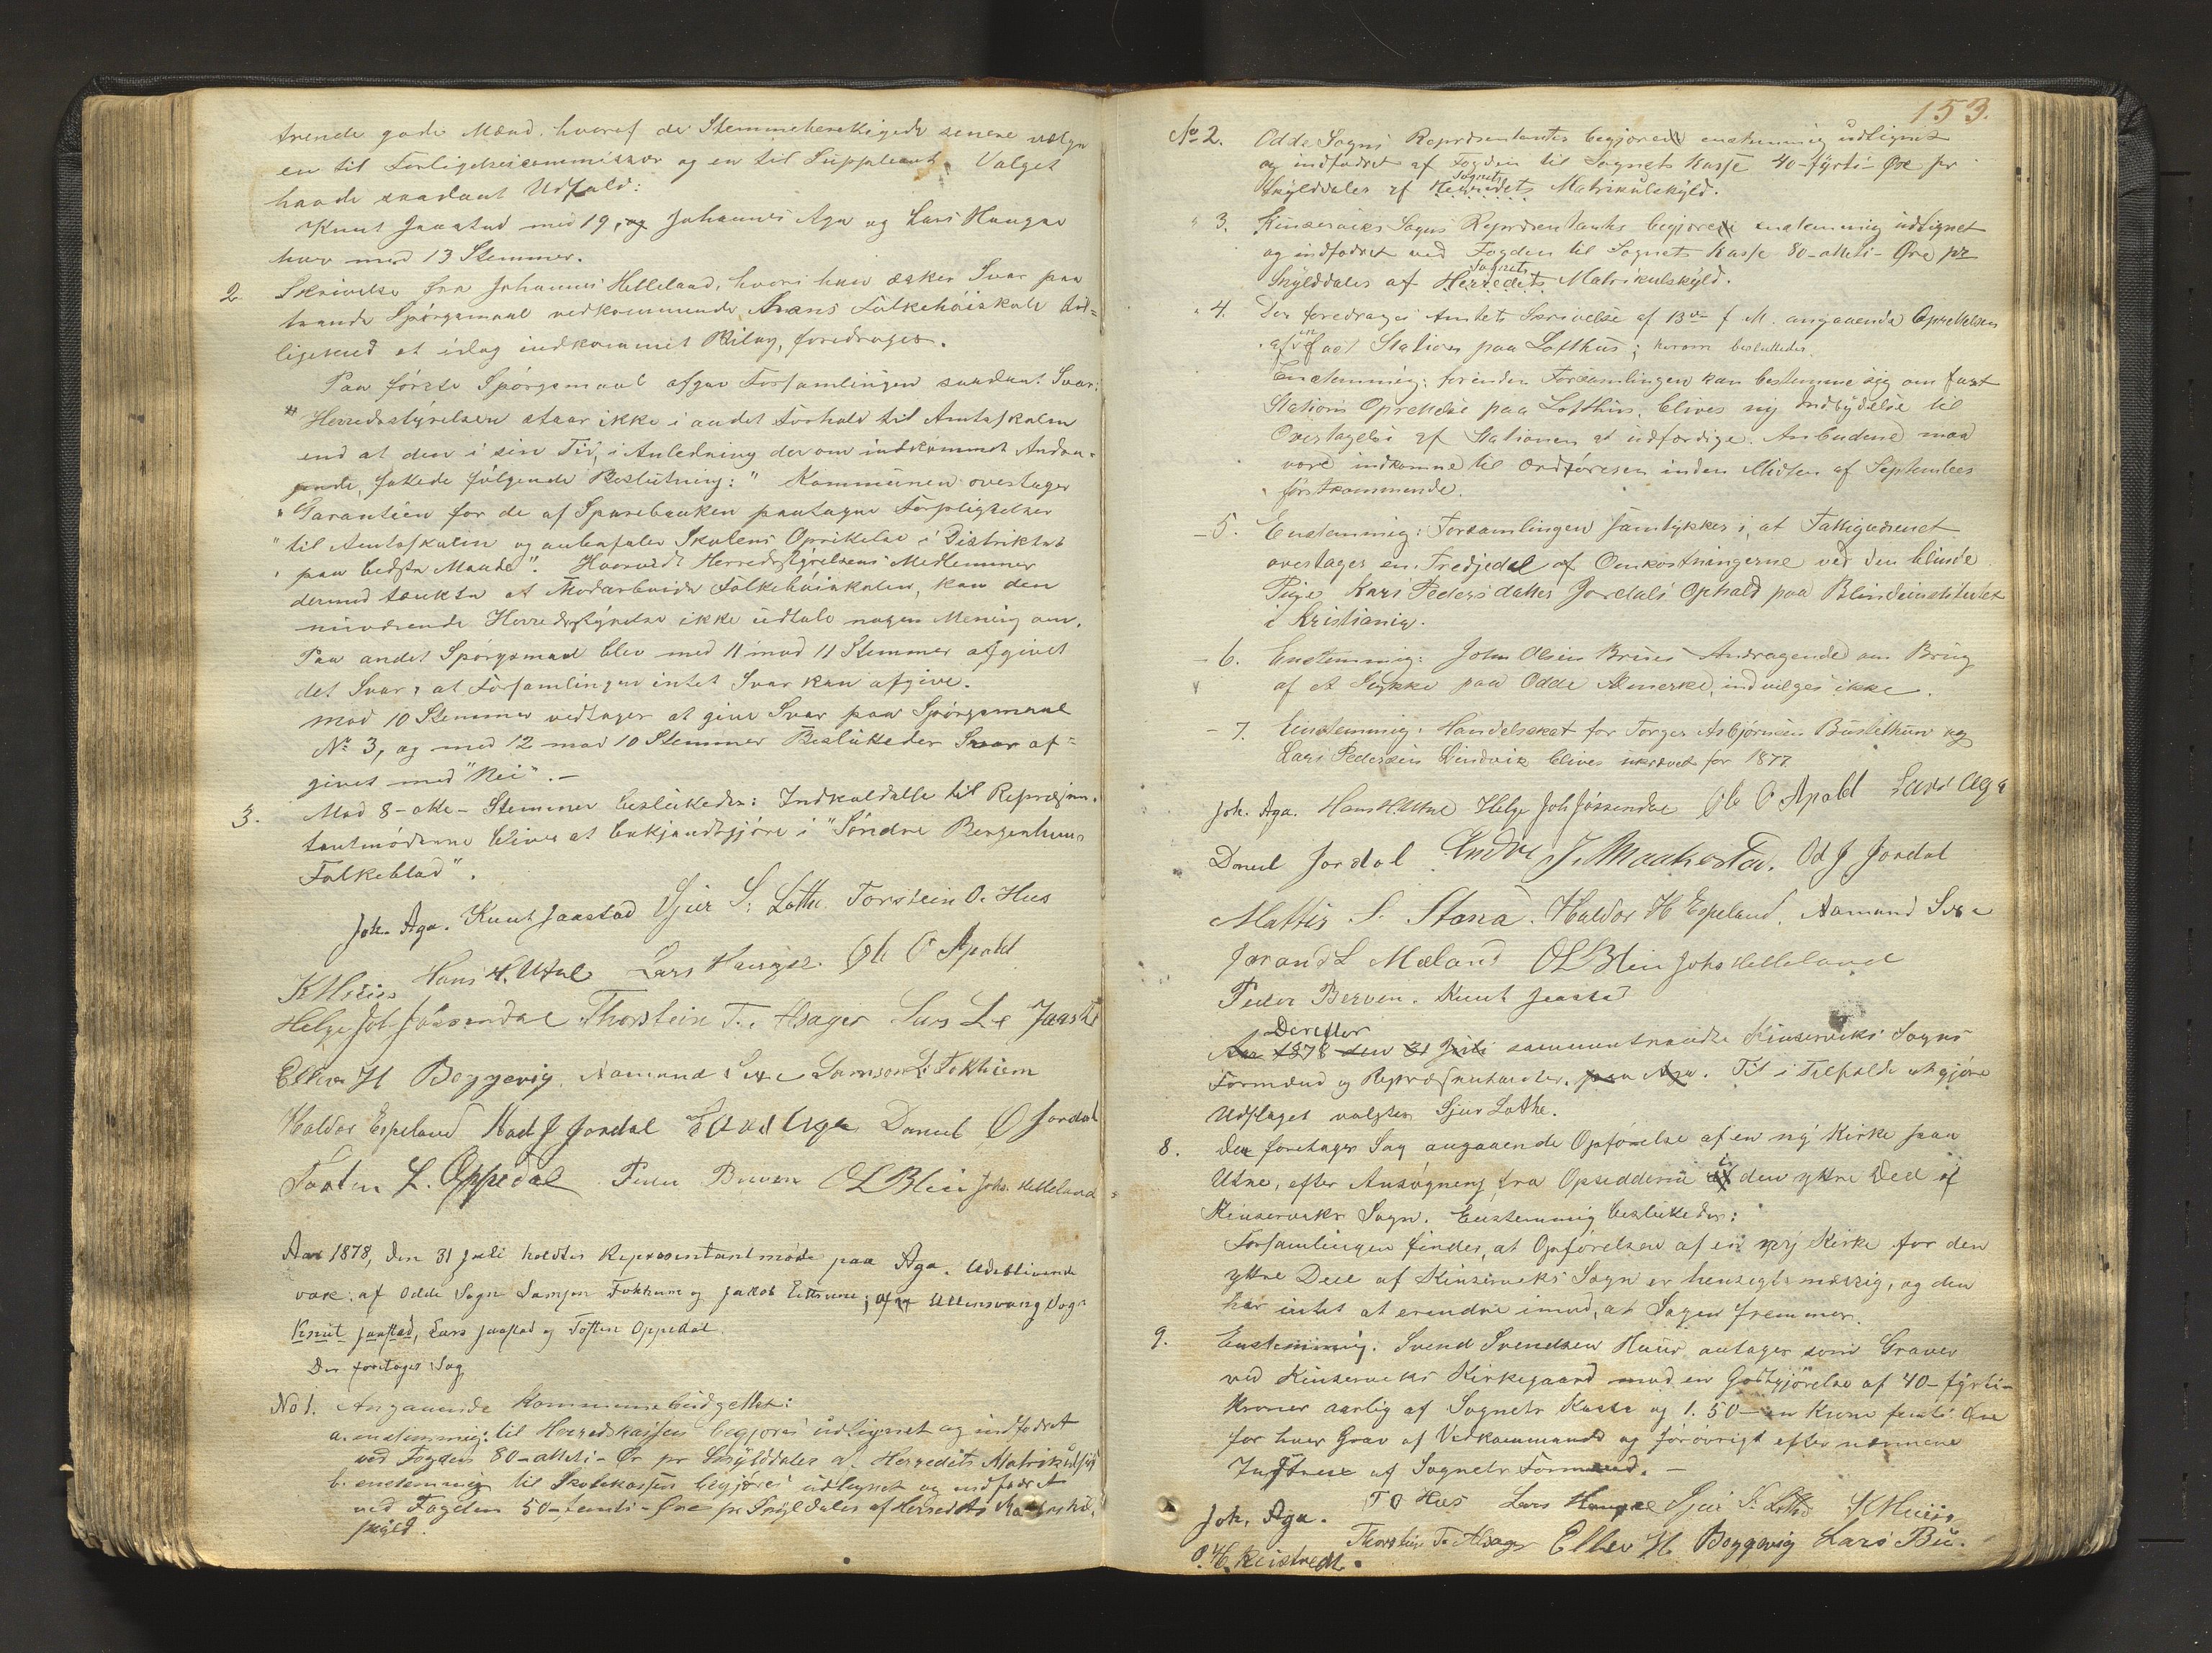 trende gode Mænd, hvoraf de Stemmeberettigede senere vælger
en til Forligelsescommissær og en til Suppleant. Valget
havde saadant Udfald:
Knut Jaastad med 19, og Johannes Aga og Lars Haugse
hver med 13 Stemmer.
2. Skrivelse fra Johannes Helleland, hvori han æsker Svar paa
trende Spörgsmaal vedkommende Folkehöiskole til=
ligemed et idag indkommet Bilag, foredroges.
Paa förste Spörgsmaal afgav Forsamlingen saadant Svar:
"Herredsstyrelsen staar ikke i andet Forhold til Amtsskolen
end at den i sin Tid, i Anledning derom indkommet Andra-
gende, fattede fölgende Beslutning: "Kommunen overtager
"Garantien for de af Sparebanken paatagne Forpligtelser
"til Amtsskolen og anbefaler Skolens Oprettelse i Distriktet
"paa bedste Maade". Hvorvidt Herredsstyrelsens Medlemmer
dermed tænkte at Modarbeide Folkehöiskolen, kan den
nuværende Herredsstyrelse ikke udtale nogen Mening om.
Paa andet Spörgsmaal blev med 11 mod 11 Stemmer afgivet
det Svar, at Forsamlingen intet Svar kan afgive.
Mod 10 Stemmer vedtages at give Svar paa Spörgsmaal
No 3, og med 12 mod 10 Stemmer Beslutteder Svar af=
givet med "Nei". -
3. Mod 8 - otte - Stemmer besluttedes: Indkaldelse til Repræsen-
tantmöderne bliver at bekjendtgjöre i "Söndre Bergenhus
Folkeblad".
Joh. Aga. Knut Jaastad Sjur S. Lothe Torstein O. Hus
K Huus Hans H. Utne Lars Haugse Ole O Apold
Helge Joh Jösendal Thorstein T. Alsager Lars L Jaastad
Ellev H Byggevig Aamund Sexe Samson L. Tokheim
Haldor Espeland Odd J Jordal Lavd Aga Daniel O Jordal
Tosten L. Oppedal Peder Berven OL Blein Johs Helleland
Aar 1878, den 31 Juli holdtes Repræsentantmöde paa Aga. Udeblivende
vare: af Odde Sogn Samson Tokheim og Jakob Eitrheim; af Ullensvang Sogn
Knut Jaastad, Lars Jaastad og Tosten Oppedal.
Der foretages Sag
No 1. Angaaende Kommunebudgettet:
a. enstemmig: til Herredskassen begjæres udlignet og indfodret
ved Fogden 80 - otteti - Öre pr Skylddaler af Herredets Matrikulskyld
b. enstemmig til Skolekassen begjæres udlignet og indfodret
ved Fogden 50 - femti - Öre pr Skylddaler af Herredets Matrikul-
skyld.
153.
No 2. Odde Sogns Repræsentanter begjærede enstemmig udlignet
og indfodret af Fogden til Sognets Kasse 40 - fyrti - Öre pr
Skylddaler af Herredets Sognets Matrikulskyld.
" 3. Kinserviks Sogns Repræsentanter begjærede enstemmig udlignet
og indfodret ved Fogden til Sognets Kasse 80 - otteti - Öre pr
Skylddaler af Herredets Sognets Matrikulskyld.
" 4. Der foredrages Amtets Skrivelse af 13de f. M. angaaende Oprettelsen
af en fast Station paa Lofthus; hvorom besluttedes.
Enstemmig: forinden Forsamlingen kan bestemme sig om fast
Stations Oprettelse paa Lofthus, bliver ny Indbydelse til
Overtagelse af Stationen at udfærdige. Anbudene maa
være indkomne til Ordföreren inden Midten af September
förstkommende.
- 5. Enstemmig: Forsamlingen samtykker i, at Fattigvæsenet
overtager en Tredjedel af Omkostningerne ved den blinde
Pige Kari Pedersdatter Jordals Ophold paa Blindeinstitutet
i Kristiania.
- 6. Enstemmig: John Olsen Bruns Andragende om Brug
af et Stykke paa Odde Almenning, indvilges ikke.
- 7. Enstemmig: Handelsskat for Torger Asbjörnsen Bustethun og
Lars Pedersen Lindvik bliver ukrævet for 1877.
Joh. Aga. Hans H. Utne Helge Joh Jösendal Ole O Apold Lavd Aga
Daniel Jordal Endre J. Maakestad. Od J Jordal
Mattis S. Stana. Haldor H Espeland. Aamund Sexe
Jørand L Mæland OL Blein Johs Helleland
Peder Berven. Knut Jaastad
Derefter
Aar 1878 den 31 Juli sammentraadte Kinserviks Sogns
Formænd og Repræsentanter, paa Aga. Til i Tilfælde at gjöre
Udslaget valgtes Sjur Lothe.
8. Der foretages Sag angaaende Opförelse af en ny Kirke paa
Utne, efter Ansögning fra Opsidderne i den yttre Deel af
Kinserviks Sogn. Enstemmig besluttedes:
Forsamlingen finder, at Opförelsen af en ny Kirke for den
yttre Deel af Kinserviks Sogn er hensigtsmæssig, og den
har intet at erindre imod, at Sagen fremmes.
9. Enstemmig. Svend Svendsen Huus antages som Graver
ved Kinserviks Kirkegaard mod en Godtgjörelse af 40 - fyrti -
Kroner aarlig af Sognets Kasse og 1.50 - en Krone femti Öre
for hver Grav af Vedkommende og forövrigt efter nærmere
Instrux af Sognets Formænd. -
Joh. Aga. T O Hus Lars Haugse Sjur S. Lothe K Huus
O. H. Reisæter Thorstein T. Alsager Ellev H Byggevig Lars Bu.